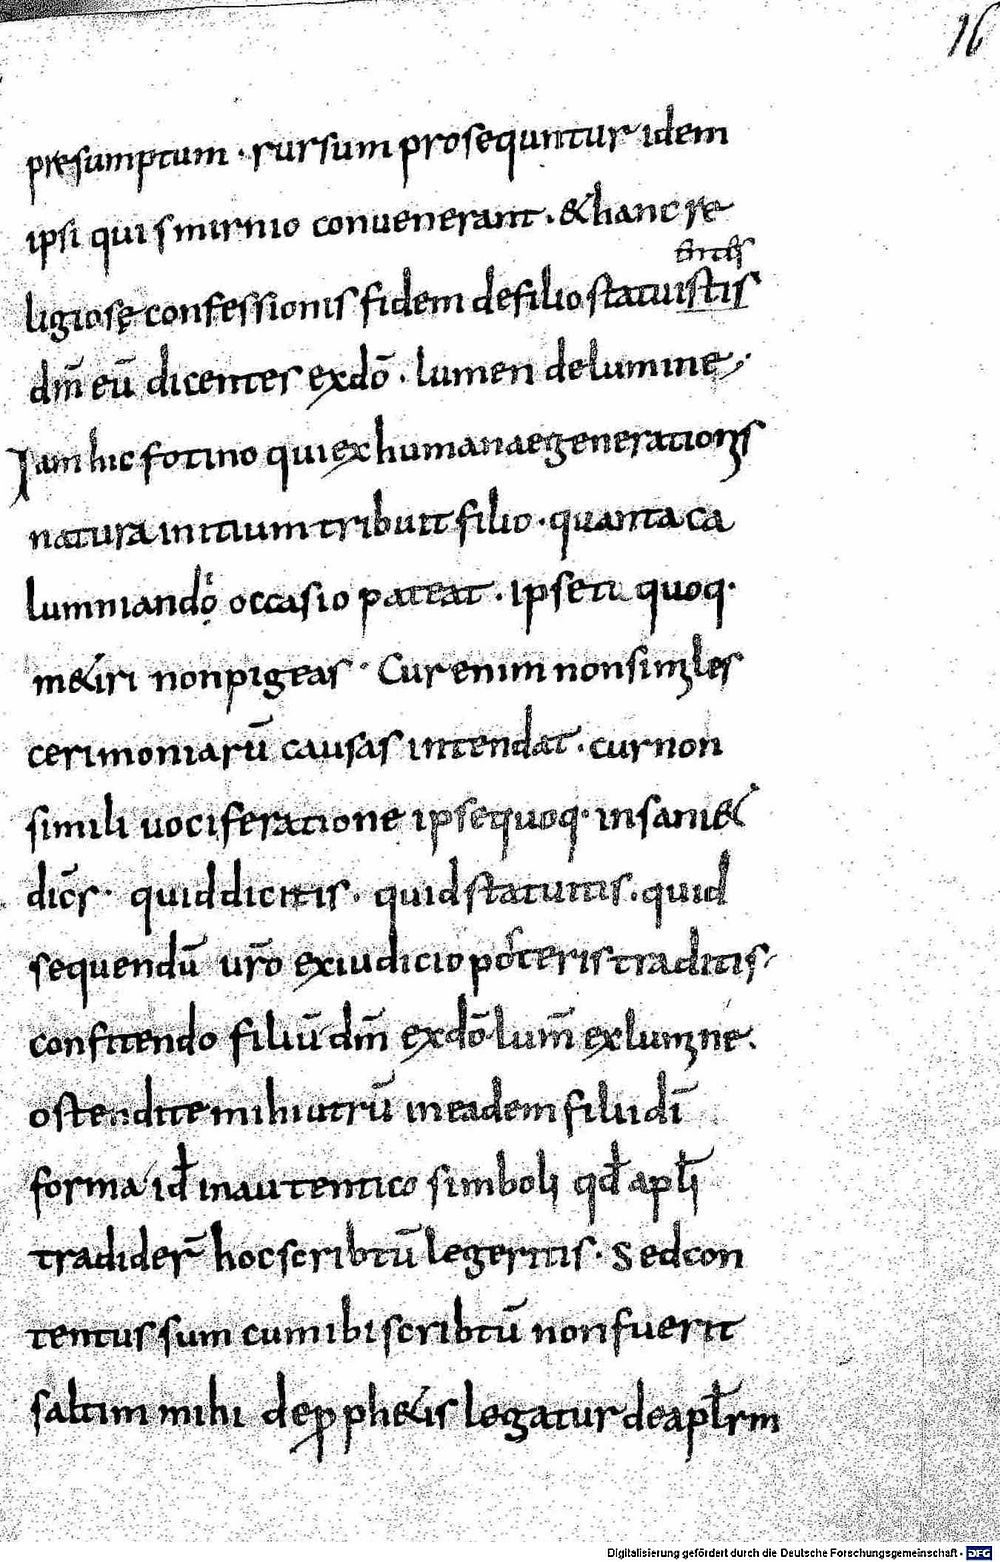 16
presumptum · rursum prosequntur idem
ipsi qui smirnio convenerant · & hanc re
ligiosę confessionis fidem de filio statuistis
dm̄ eū dicentes ex dō · lumen de lumine
Iam hic fotino qui ex humanae generationis
natura initium tribuit filio · quanta ca
lumniandọi occasio pateat · ipse ti quoq·
m&iri non pigeas · Cur enim non similes
cerimoniarū causas intendat · cur non
simili vociferatione ipse quoq· insani&
dics · quid dicitis · quid statuitis · quid
sequendū vr̄o ex iudicio posteris traditis
confitendo filiū dm̄ ex dō lum̄ ex lumine ·
ostendite mihi utrū in eadem filii dī
forma id in autentico simboli qđ apłi
tradider̄ hoc scribtū legeritis · Sed con
tentus sum cum ibi scribtū non fuerit
saltim mihi de pph&is legatur de apłrm
Digitalisierung gefördert durch die Deutsche Forschungsgemeinschaft - DFG